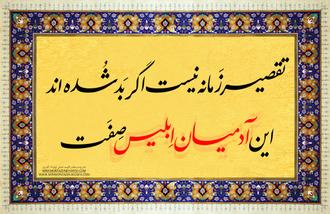 تقصیر زَمانه نیست اگر بَد شُده اند
این آدمیان اِبلیس صِفَت